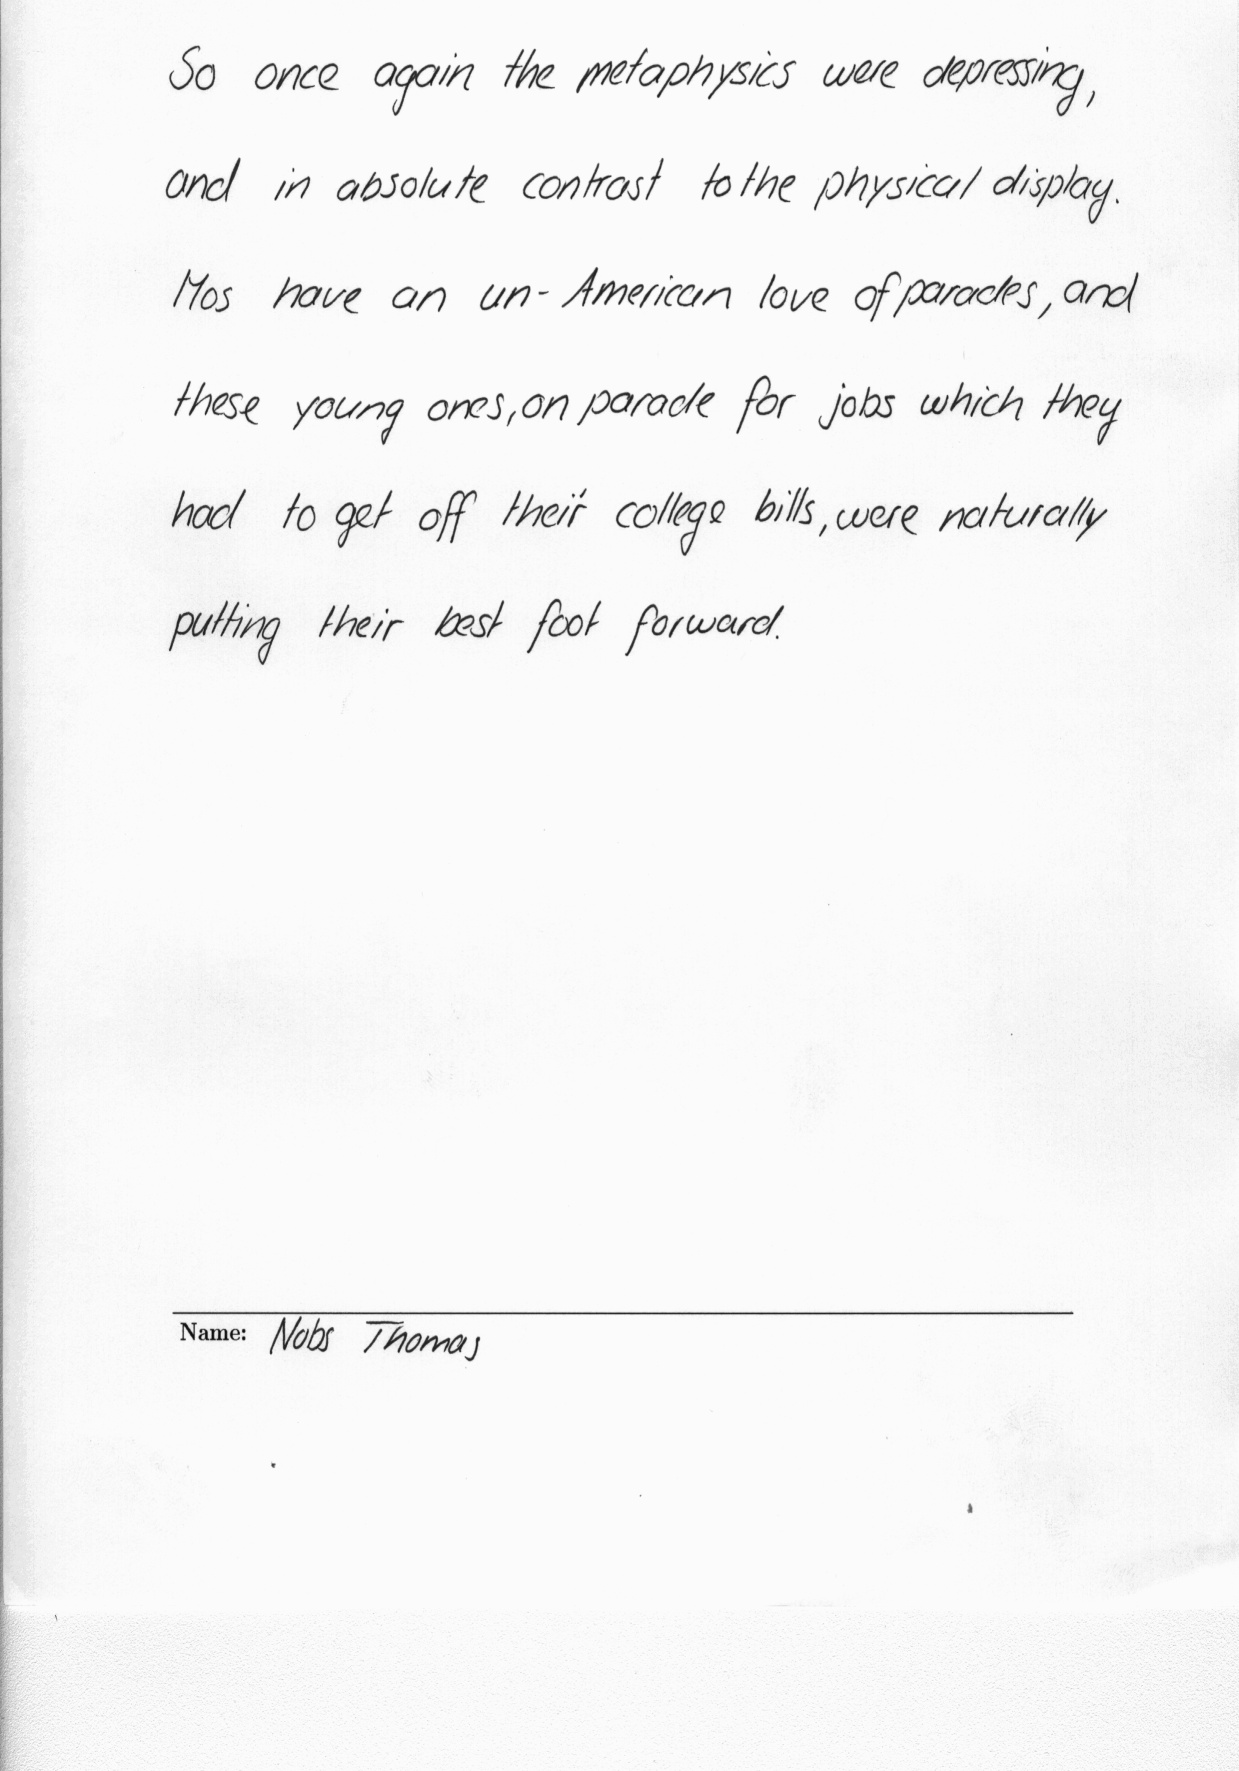 So once again the metaphysics were depressing,
and in absolute contrast to the physical display.
Mos have an un-American love of parades, and
these young ones, on parade for jobs which they
had to get off their college bills, were naturally
putting their best foot forward.
Name: Nobs Thomas